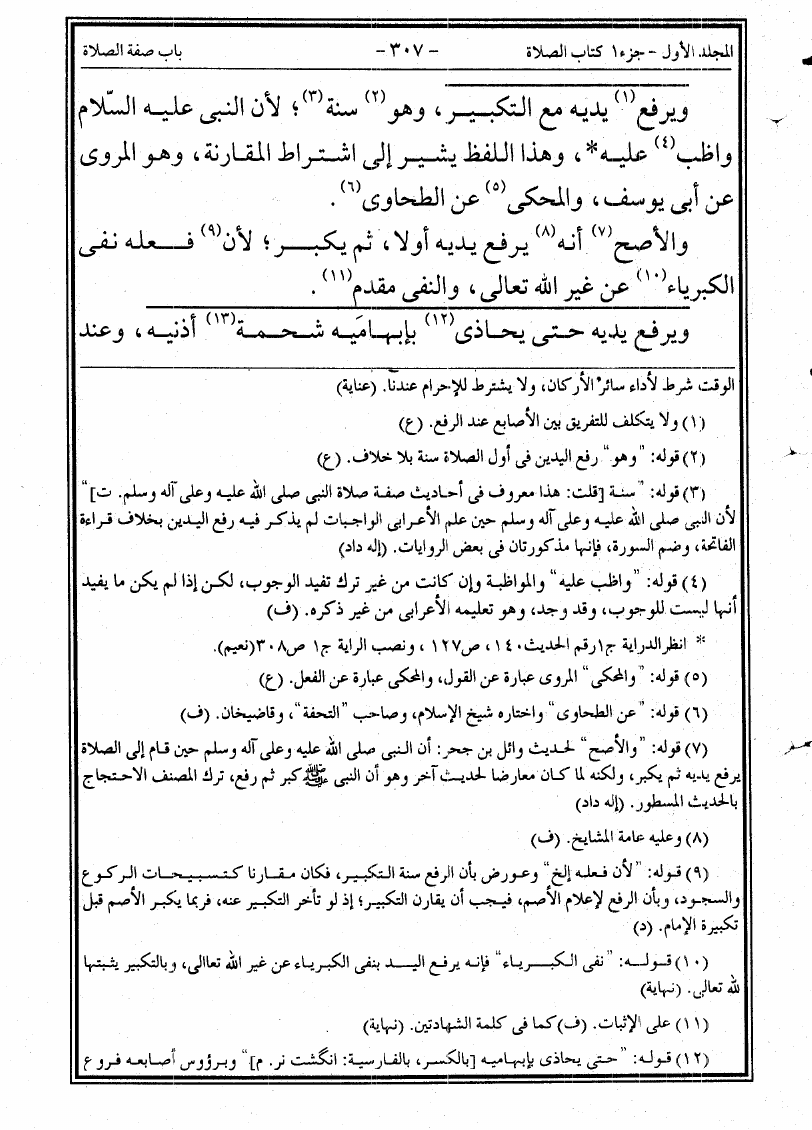 المجلد الأول - جزء ١ كتاب الصلاة - ٣٠٧ - باب صفة الصلاة
ويرفع(١) يديه مع التكبير، وهو(٢) سنة(٣)؛ لأن النبى عليه السّلام
واظب(٤) عليه*، وهذا اللفظ يشير إلى اشتراط المقارنة، وهو المروى
عن أبى يوسف، والمحكى(٥) عن الطحاوى(٦).
والأصح(٧) أنه(٨) يرفع يديه أولا، ثم يكبر؛ لأن(٩) فعله نفى
الكبرياء(١٠) عن غير الله تعالى، والنفى مقدم(١١).
ويرفع يديه حتى يحاذى(١٢) بإبهامَيه شحمة(١٣) أذنيه، وعند
الوقت شرط لأداء سائر الأركان، ولا يشترط للإحرام عندنا. (عناية)
(١) ولا يتكلف للتفريق بين الأصابع عند الرفع. (ع)
(٢) قوله: "وهو" رفع اليدين فى أول الصلاة سنة بلا خلاف. (ع)
(٣) قوله: "سنة [قلت: هذا معروف فى أحاديث صفة صلاة النبى صلى الله عليه وعلى آله وسلم. ت]"
لأن النبى صلى الله عليه وعلى آله وسلم حين علم الأعرابى الواجبات لم يذكر فيه رفع اليدين بخلاف قراءة
الفاتحة، وضم السورة، فإنها مذكورتان فى بعض الروايات. (إله داد)
(٤) قوله: "واظب عليه" والمواظبة وإن كانت من غير ترك تفيد الوجوب، لكن إذا لم يكن ما يفيد
أنها ليست للوجوب، وقد وجد، وهو تعليمه الأعرابى من غير ذكره. (ف)
* انظر الدراية ج١ رقم الحديث ١٤٠، ص١٢٧، ونصب الراية ج١ ص٣٠٨ (نعيم).
(٥) قوله: "والمحكى" المروى عبارة عن القول، والمحكى عبارة عن الفعل. (ع)
(٦) قوله: "عن الطحاوى" واختاره شيخ الإسلام، وصاحب "التحفة"، وقاضيخان. (ف)
(٧) قوله: "والأصح" لحديث وائل بن جحر: أن النبى صلى الله عليه وعلى آله وسلم حين قام إلى الصلاة
يرفع يديه ثم يكبر، ولكنه لما كان معارضا لحديث آخر وهو أن النبى ﷺ كبر ثم رفع، ترك المصنف الاحتجاج
بالحديث المسطور. (إله داد)
(٨) وعليه عامة المشايخ. (ف)
(٩) قوله: "لأن فعله إلخ" وعورض بأن الرفع سنة التكبير، فكان مقارنا كتسبيحات الركوع
والسجود، وبأن الرفع لإعلام الأصم، فيجب أن يقارن التكبير؛ إذ لو تأخر التكبير عنه، فربما يكبر الأصم قبل
تكبيرة الإمام. (د)
(١٠) قوله: "نفى الكبرياء" فإنه يرفع اليد بنفى الكبرياء عن غير الله تعاالى، وبالتكبير يثبتها
لله تعالى. (نهاية)
(١١) على الإثبات. (ف) كما فى كلمة الشهادتين. (نهاية)
(١٢) قوله: "حتى يحاذى بإبهاميه [بالكسر، بالفارسية: انگشت نر. م]" وبرؤوس أصابعه فروع